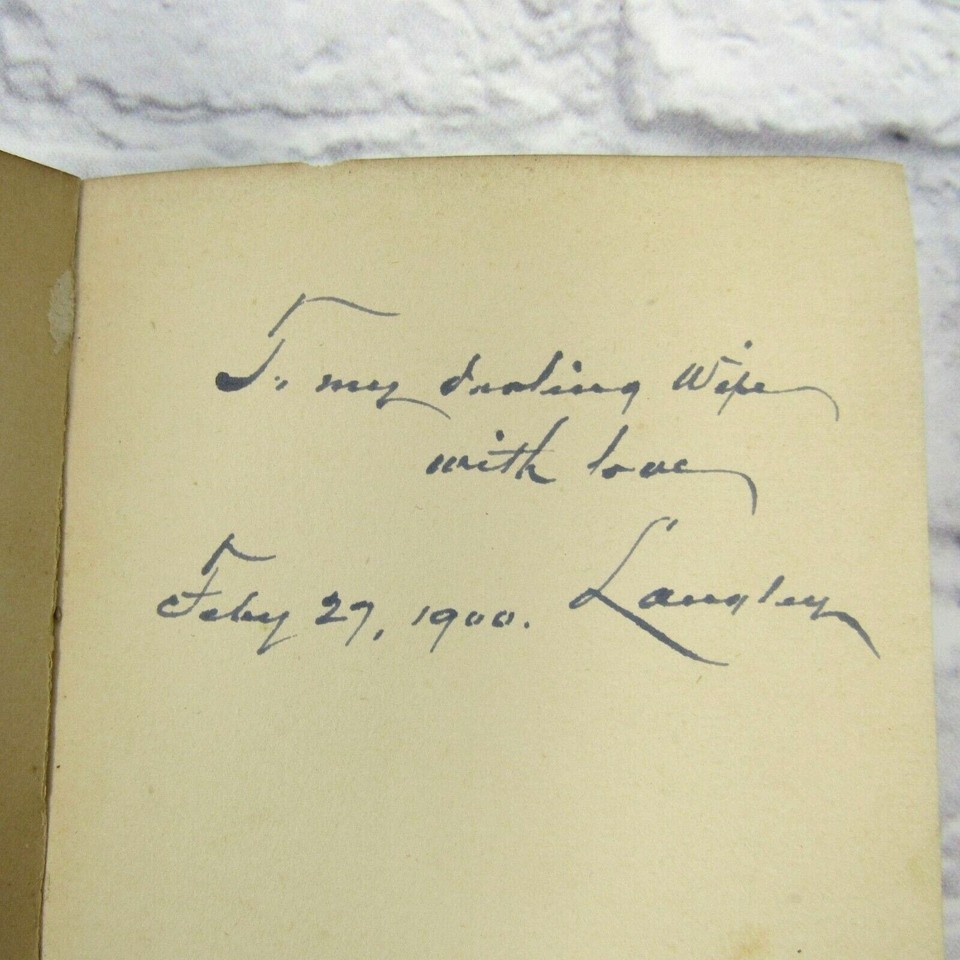 To my darling Wife
with love
Feby 27, 1900. Langley